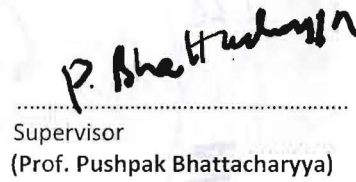 P. Bhattacharyya
.....................................................
Supervisor
(Prof. Pushpak Bhattacharyya)